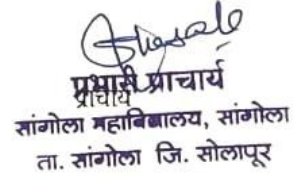 प्रभारी प्राचार्य
प्राचार्य
सांगोला महाविद्यालय, सांगोला
ता. सांगोला जि. सोलापूर